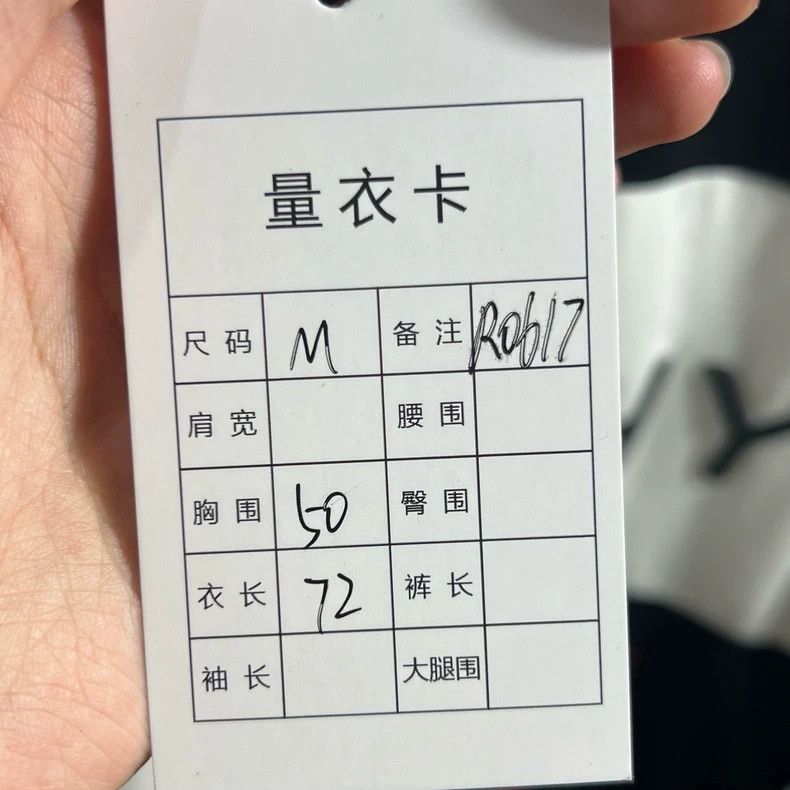 量衣卡
尺码 M 备注 R0617
肩宽 腰围
胸围 50 臀围
衣长 72 裤长
袖长 大腿围
Y